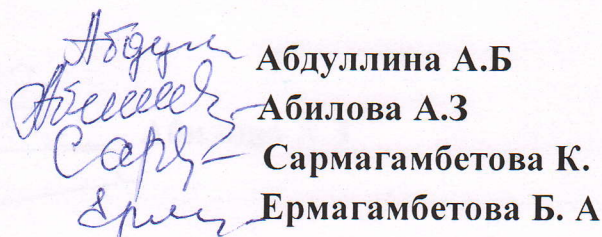 Абдул Абдуллина А.Б
Абилова А.З
Сарг Сармагамбетова К.
Ерм Ермагамбетова Б. А